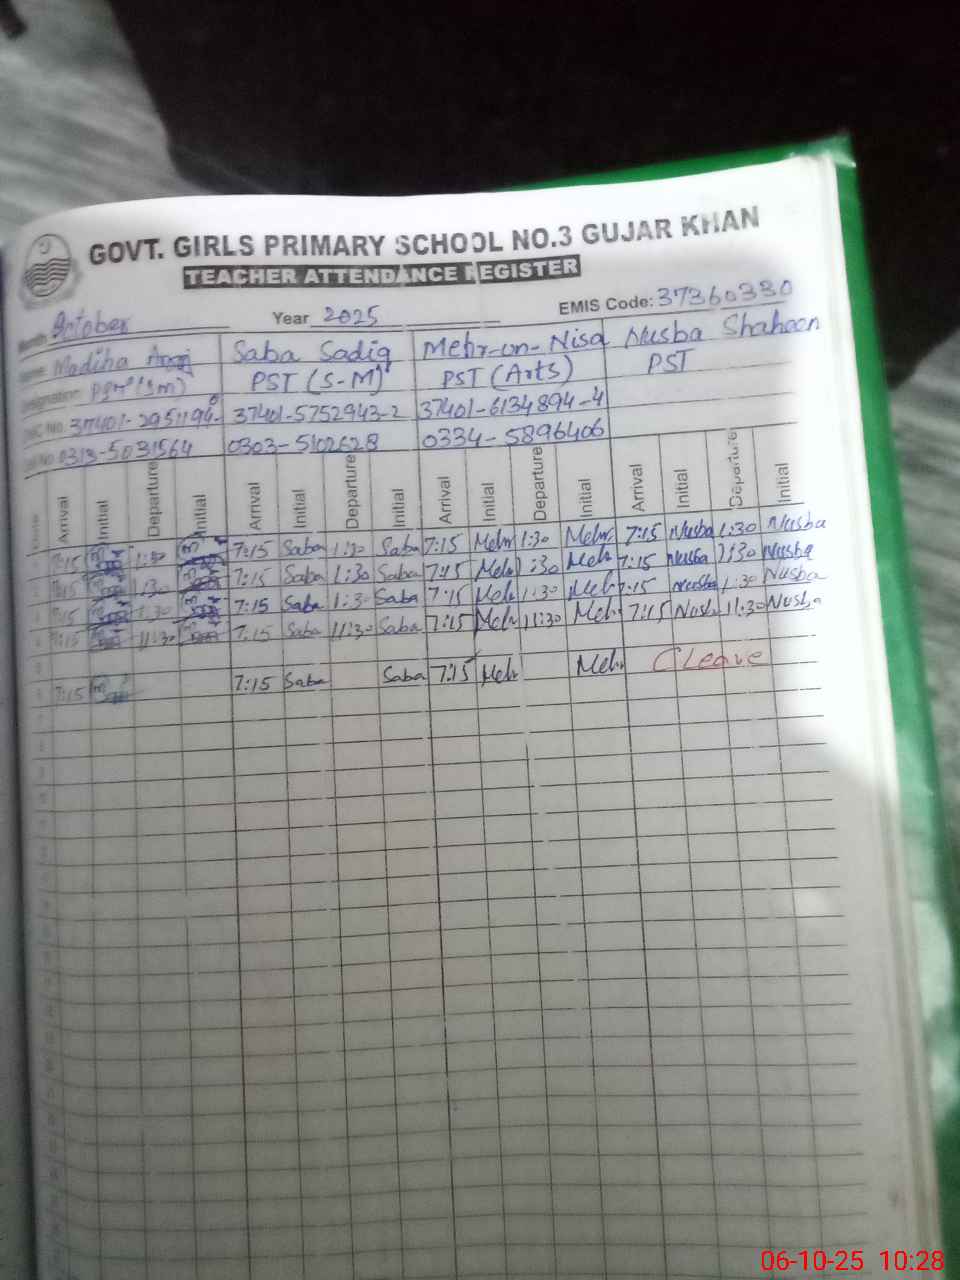 GOVT. GIRLS PRIMARY SCHOOL NO.3 GUJAR KHAN
TEACHER ATTENDANCE REGISTER
Month October Year 2025 EMIS Code: 37360330
Name Madiha Saba Sadiq Mehr-un-Nisa Nusba Shaheen
Designation PST (S-M) PST (Arts) PST
CNIC No. 37401-5752943-2 37401-6134894-4
Cell No 0313-5031564 0303-5102628 0334-5896406
Arrival Initial Departure Initial Arrival Initial Departure Initial Arrival Initial Departure Initial Arrival Initial Departure Initial
7:15 1:30 7:15 Saba 1:30 Saba 7:15 Mehr 1:30 Mehr 7:15 Nusba 1:30 Nusba
7:15 1:30 7:15 Saba 1:30 Saba 7:15 Mehr 1:30 Meh 7:15 Nusba 1:30 Nusba
7:15 1:30 7:15 Saba 1:30 Saba 7:15 Meh 1:30 Meh 7:15 Nusba 1:30 Nusba
7:15 11:30 7:15 Saba 11:30 Saba 7:15 Meh 11:30 Meh 7:15 Nusba 11:30 Nusba
7:15 7:15 Saba Saba 7:15 Meh Meh C leave
06-10-25 10:28